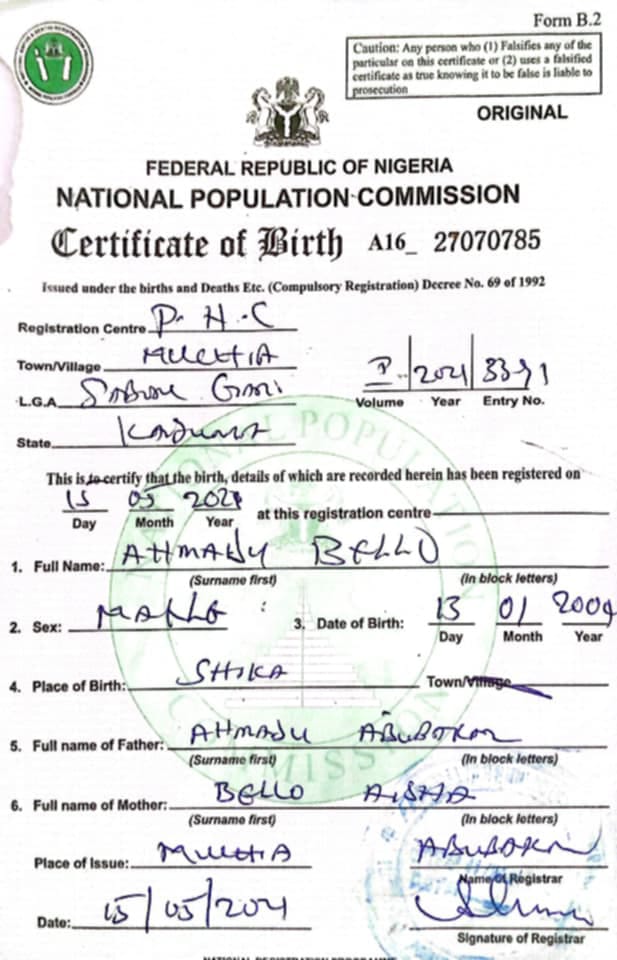 Form B.2
Caution: Any person who (1) Falsifies any of the
particular on this certificate or (2) uses a falsified
certificate as true knowing it to be false is liable to
prosecution
ORIGINAL
FEDERAL REPUBLIC OF NIGERIA
NATIONAL POPULATION COMMISSION
Certificate of Birth A16_ 27070785
Issued under the births and Deaths Etc. (Compulsory Registration) Decree No. 69 of 1992
Registration Centre P.H.C
Town/Village
L.G.A
Volume Year Entry No.
State KADUNA
This is to certify that the birth, details of which are recorded herein has been registered on
15 05
Day Month Year at this registration centre
1. Full Name: AHMADU BELLO
(Surname first) (In block letters)
2. Sex: 3. Date of Birth: 13 01
Day Month Year
4. Place of Birth: SHIKA Town/Village
5. Full name of Father: AHMADU
(Surname first) (In block letters)
6. Full name of Mother: BELLO AISHA
(Surname first) (In block letters)
Place of Issue:
Name of Registrar
Date:
Signature of Registrar
NATIONAL POPULATION COMMISSION